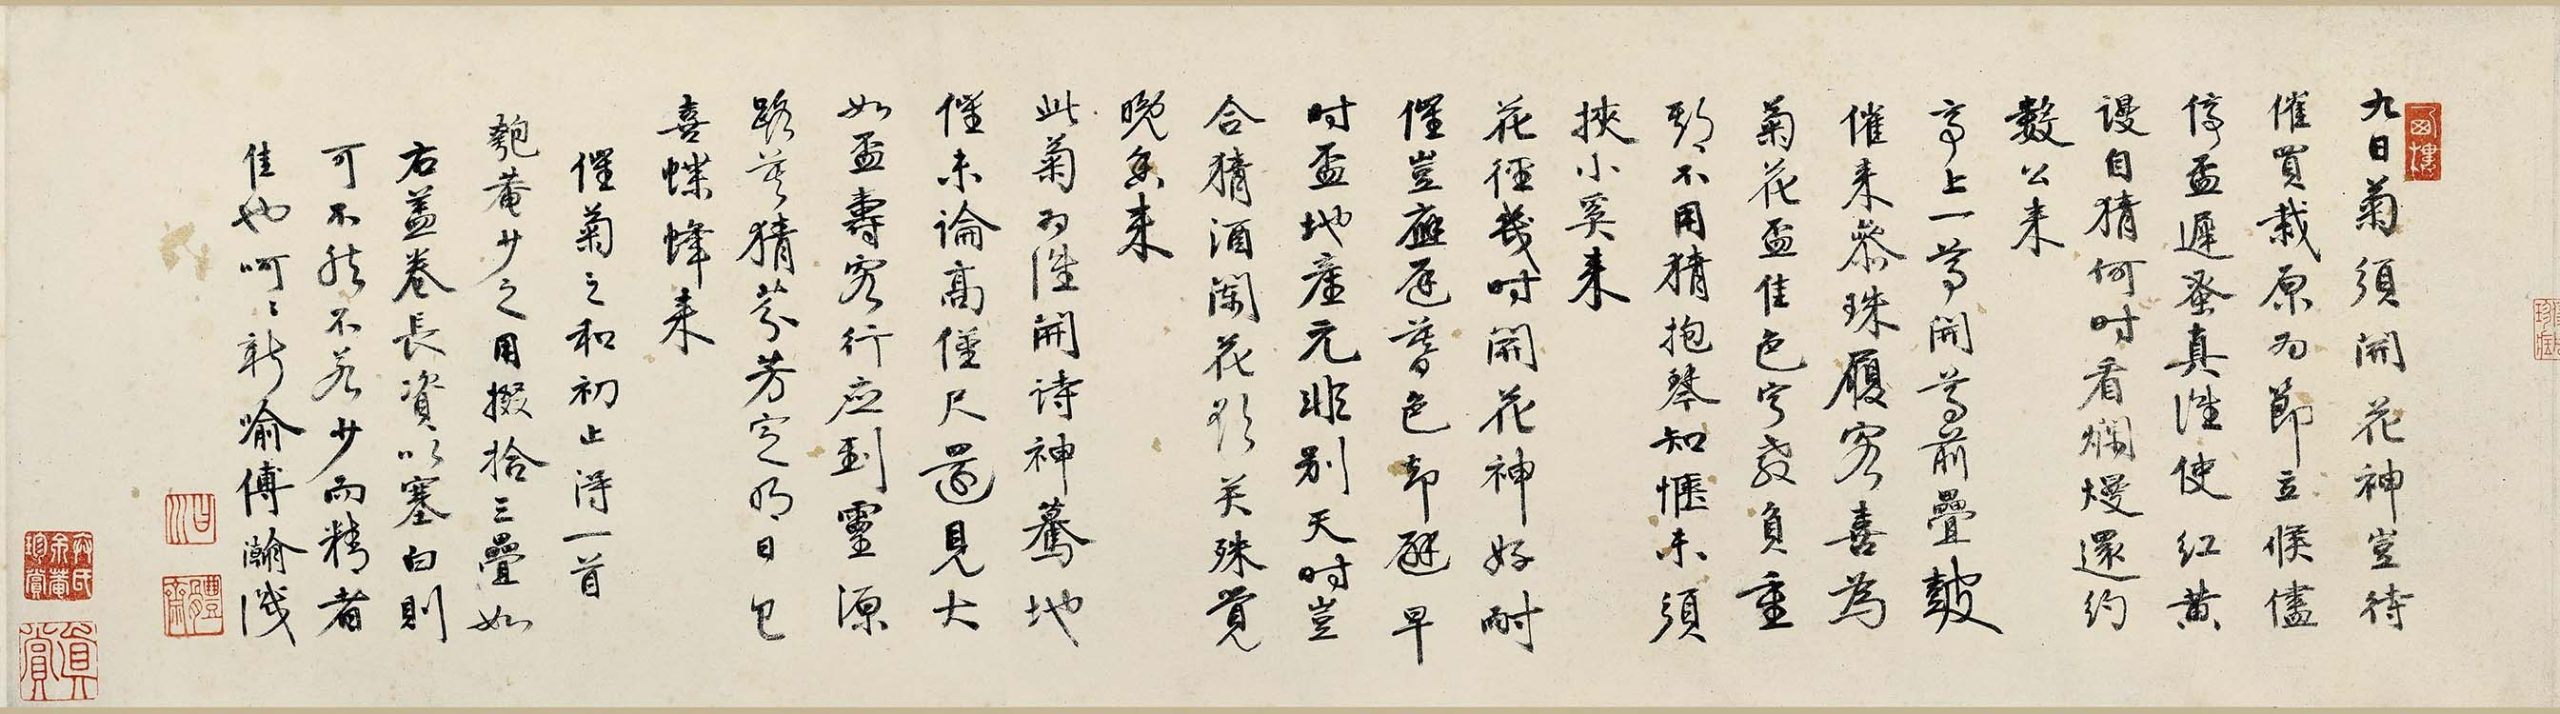 九日菊須開花神豈待
催買栽原為節立候儘
停盃遲發真性使紅黃
謾自猜何時看爛熳還約
數公来
亭上一尊開尊前疊鼓
催来參珠履客喜為
菊花盃佳色寧教負重
期不用猜抱琴知愜未須
挾小奚来
花徑幾時開花神好耐
催豈應遲暮色却避早
时盃地產元非别天时豈
合猜酒闌花欲笑殊覺
晚香来
此菊为誰開诗神驀地
催未論高僅尺還見大
如盃壽客行应到靈源
路莫猜芬芳定明日已
喜蝶蜂来
催菊之和初止得一首
匏菴少之用掇拾三疊如
右蓋卷長資以塞白則
可不然不若少而精者
佳也呵呵新喻傅瀚識